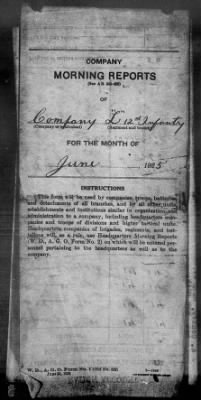 COMPANY
MORNING REPORTS
(See A R 345-400)
OF
Company L 12th Infantry
(Company or detachment) (Regiment and branch)
FOR THE MONTH OF
June 1925
INSTRUCTIONS
This form will be used by companies, troops, batteries,
and detachments of all branches, and by all other units,
establishments and institutions similar in organization and
administration to a company, including headquarters com-
panies and troops of divisions and higher tactical units.
Headquarters companies of brigades, regiments, and bat-
talions will, as a rule, use Headquarters Morning Reports
(W. D., A. G. O. Form No. 2) on which will be entered per-
sonnel pertaining to the headquarters as well as to the
company.
W. D., A. G. O. Form No. 1